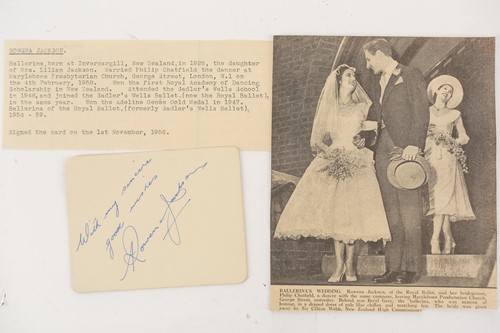 ROWENA JACKSON.
Ballerina, born at Invercargill, New Zealand, in 1926, the daughter
of Mrs. Lilian Jackson. Married Philip Chatfield the dancer at
Marylebone Presbyterian Church, George Street, London, W.1 on
the 4th February, 1958. Won the first Royal Academy of Dancing
Scholarship in New Zealand. Attended the Sadler's Wells School
in 1946, and joined the Sadler's Wells Ballet, (now the Royal Ballet),
in the same year. Won the Adeline Genée Gold Medal in 1947.
Ballerina of the Royal Ballet, (formerly Sadler's Wells Ballet),
1954 - 59.
Signed the card on the 1st November, 1956.
With my sincere
good wishes
Rowena Jackson
BALLERINA'S WEDDING. Rowena Jackson, of the Royal Ballet, and her bridegroom,
Philip Chatfield, a dancer with the same company, leaving Marylebone Presbyterian Church,
George Street, yesterday. Behind was Beryl Grey, the ballerina, who was matron of
honour, in a draped dress of pale lilac chiffon and matching hat. The bride was given
away by Sir Clifton Webb, New Zealand High Commissioner.